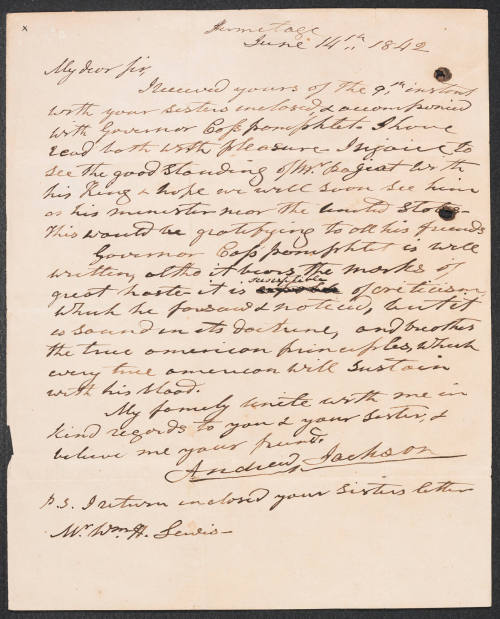 x
Hermitage
June 14th 1842
My dear Sir,
I received yours of the 9th instant
with your sisters enclosed, & accompanied
with Governor Cass pamphlet. I have
read both with pleasure. I rejoice to
see the good standing of Mr. Pageot with
his King & hope we will soon see him
as his minister near the United States—
This would be gratifying to all his friends
Governor Cass pamphlet is well
written, altho it bears the marks of
great haste it is susceptible of criticism
which he forsaw & noticed, but it
is sound in its doctrine, and breathes
the true american principles, which
every true american will sustain
with his blood.
My family unite with me in
kind regards to you & your sister, &
believe me your friend.
Andrew Jackson
p.s. I return enclosed your sisters letter
Mr. Wm. H. Lewis—